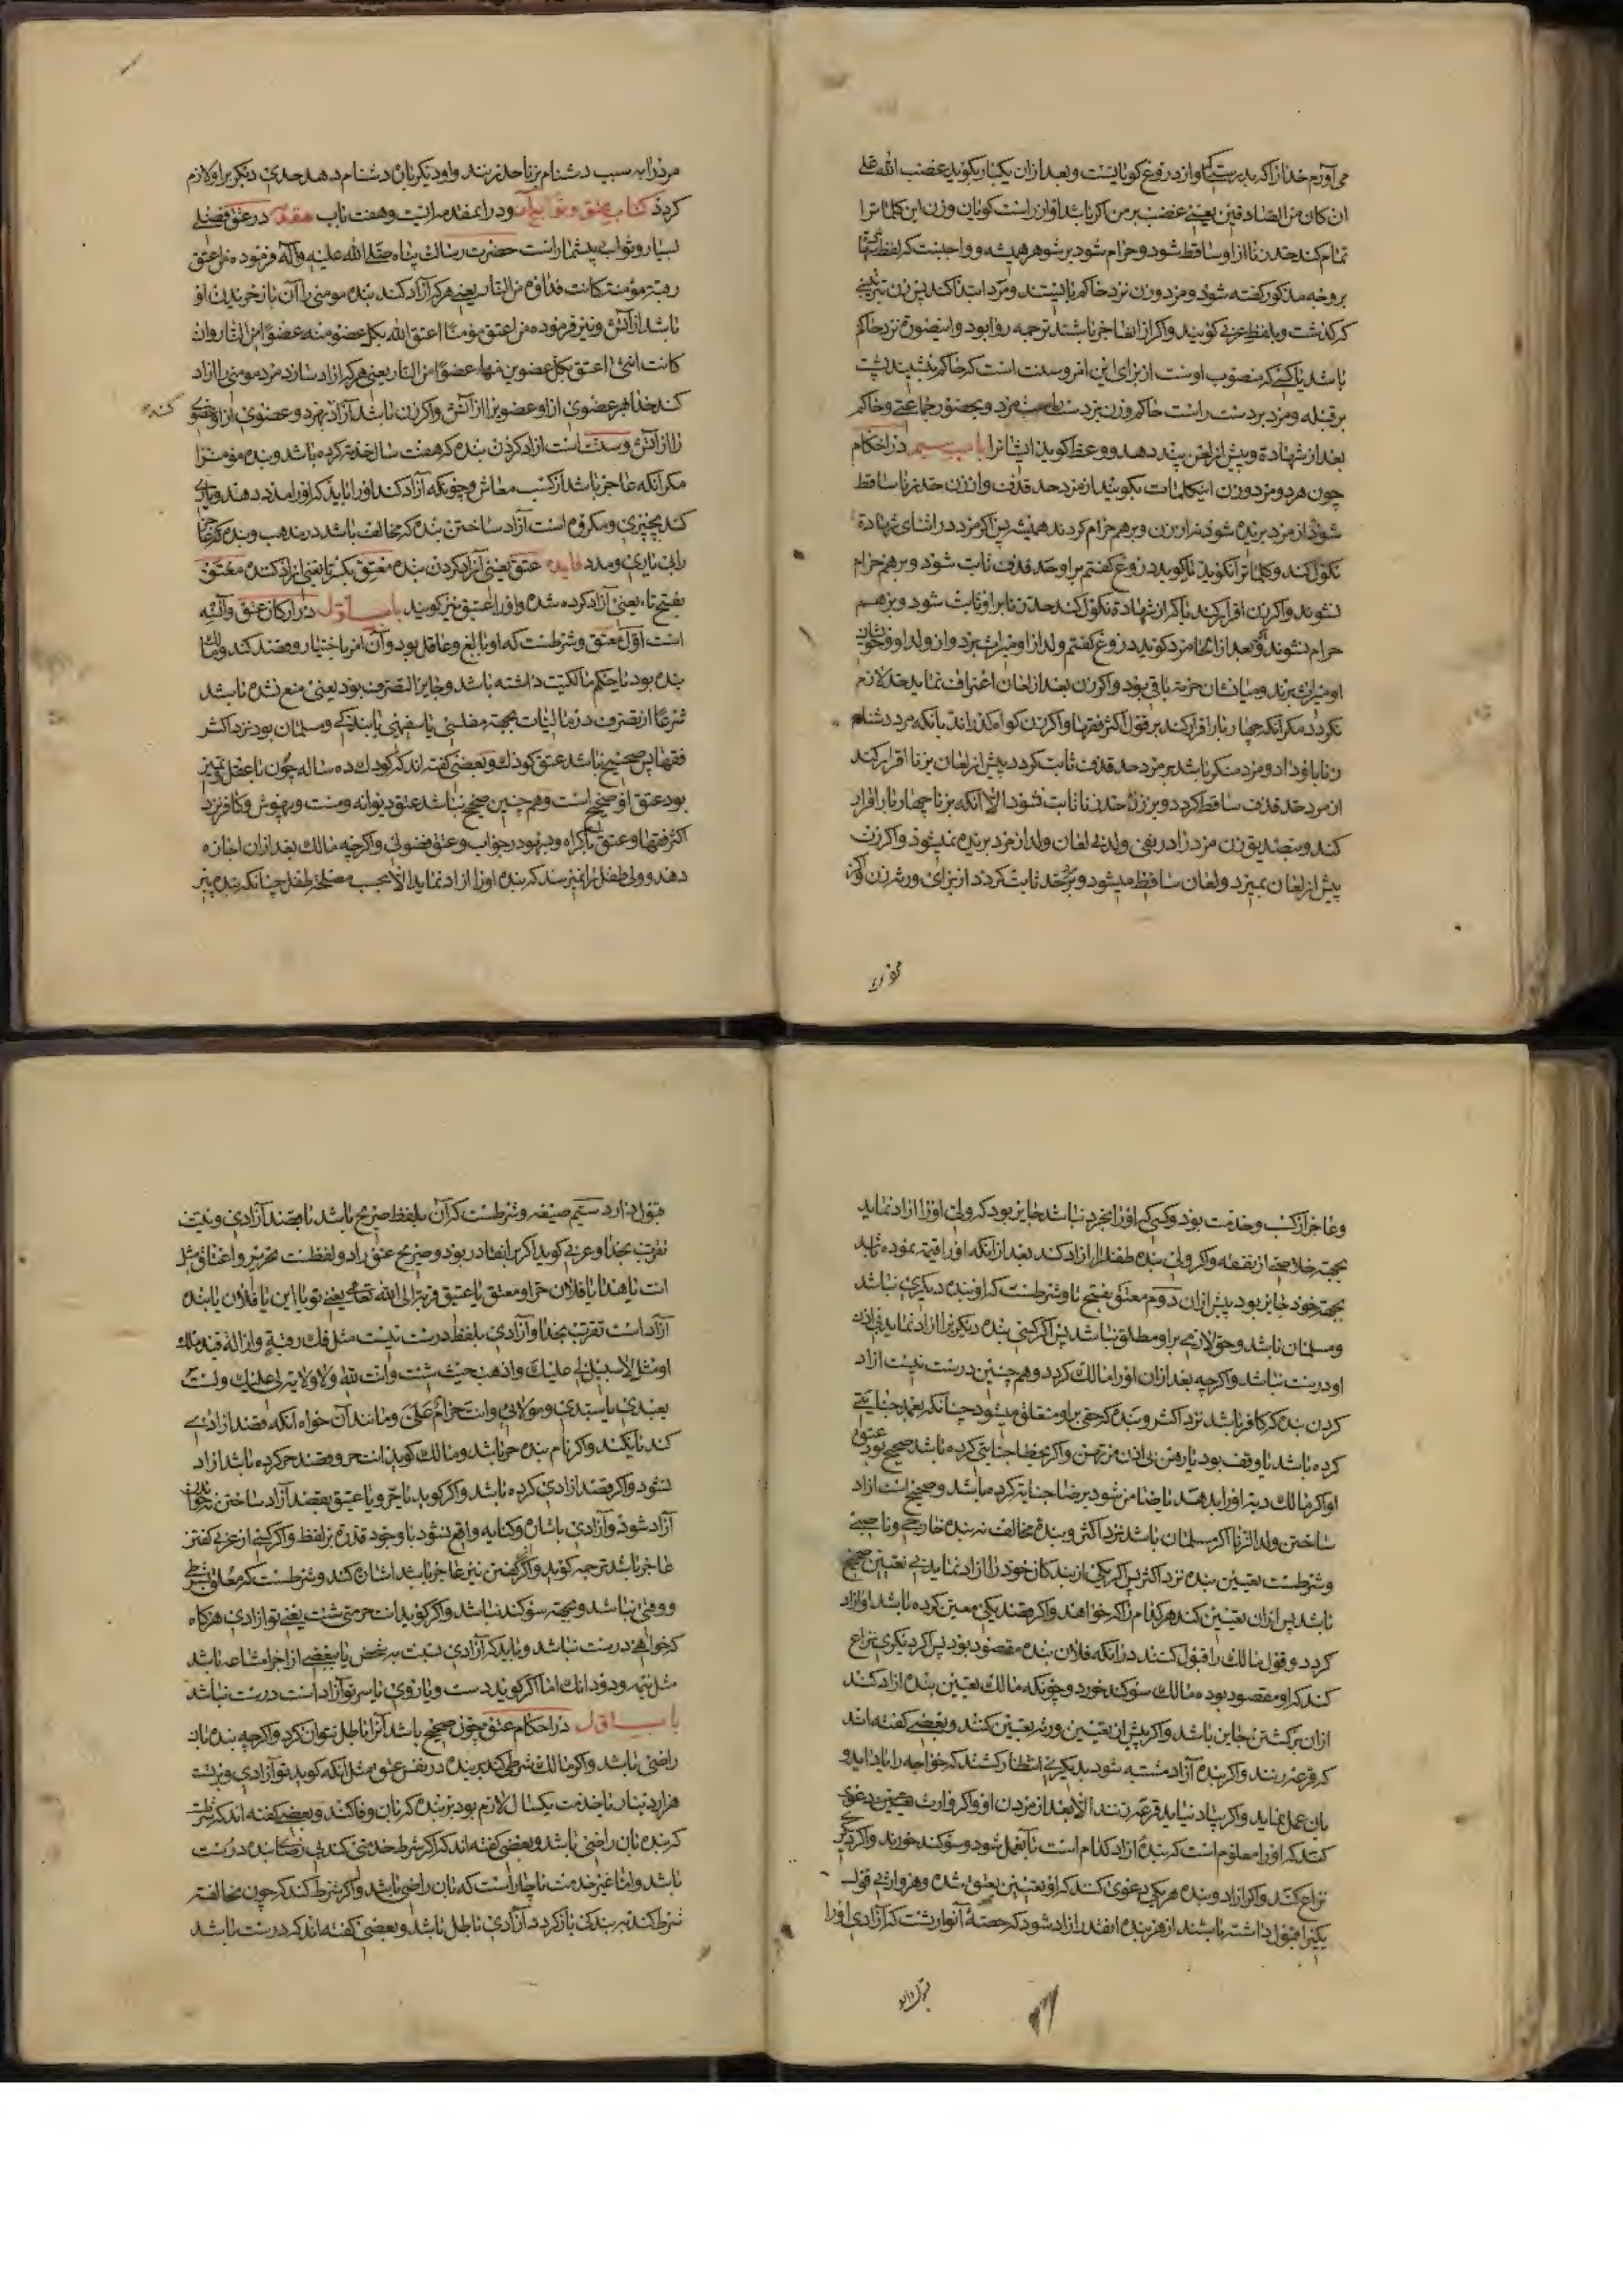 می آورم خدا را که بدرستی که او از دروغ کویانست و بعد از ان یکبار بکوید غضب الله علی
ان کان من الصادقین یعنی غضب بر من اکر باشد او از راست کویان و زن این کلماترا
تمام کند حد زنا از او ساقط شود و حرام شود بر شوهر همیشه و واجبست که لفظ
بر وجه مذکور کفته شود و مرد و زن نزد حاکم بایستند و مرد ابتدا کند پس زن بترتیبی
که کذشت و بلفظ عربی کویند و اکر از انها عاجز باشند ترجمه روا بود و اینصورة نزد حاکم
باشد یا کسی که منصوب اوست از برای این امر و سنت است که حاکم بنشیند پشت
بر قبله و مرد بر دست راست حاکم و زن بر دست مرد و بحضور جماعتی و حاکم
بعد از شهادة و پیش از لعن پند دهد و وعظ کوید ایشانرا باب سیم در احکام
چون هر دو مرد و زن اینکلمات بکویند از مرد حد قذف و از زن حد زنا ساقط
شود از مرد بریده شود فراز زن و بر هم حرام کردند همیشه پس اکر مرد در اثنای شهادة
نکول کند و کلماترا نکوید یا کوید دروغ کفتم بر او حد قذف ثابت شود و بر هم حرام
نشوند و اکر زن اقرار کند یا که از شهادة نکول کند حد زنا بر او ثابت شود و بر هم
حرام نشوند و اکر بعد از انها مرد کوید دروغ کفتم ولد از او میراث برد و او از ولد و خویشان
او میراث نبرند و میانشان حرمة باقی بود و اکر زن بعد از لعان اعتراف نماید حد لازم
نکردد مکر آنکه چهار بار اقرار کند بر قول اکثر فقها و اکر زن کواه کذراند بانکه مرد دشنام
زنا باو داد و مرد منکر باشد بر مرد حد قذف ثابت کردد پیش از لعان بزنا اقرار کند
از مرد حد قذف ساقط کردد و بر زن حد زنا ثابت نشود الا آنکه بزنا چهار بار اقرار
کند و بتصدیق زن مرد را در نفی ولد بی لعان ولد از مرد بریده نمیشود و اکر زن
پیش از لعان بمیرد و لعان ساقط میشود و حد ثابت کردد از برای ورثه زن و اکر
مرد را به سبب دشنام بزنا حد زنند و او دیکر باره دشنام دهد حدی دیکر بر او لازم
کردد کتاب عتق و توابع آن و در او مقدمه ایست و هفت باب مقدمه در عتق فضل
بسیار و ثواب بیشمار است حضرت رسالت پناه صلی الله علیه و آله فرموده من اعتق
رقبة مؤمنة کانت فداؤه من النار یعنی هر که آزاد کند بنده مومنی را آن باز خریدن او
باشد از آتش و نیز فرموده من اعتق مؤمنا اعتق الله بکل عضو منه عضوا من النار و ان
کانت انثی اعتق بکل عضوین منها عضوا من النار یعنی هر که ازاد سازد مرد مومنی را ازاد
کند خدا بهر عضوی از او عضویرا از آتش و اکر زن باشد آزاد بهر دو عضوی از او عضوی کنده
را از آتش و سنت است ازاد کردن بنده که هفت سال خدمة کرده باشد و بنده مؤمنرا
مکر آنکه عاجز باشد از کسب معاش و چونکه آزاد کند او را باید که او را مدد دهد و یاری
کند بچیزی و مکروه است آزاد ساختن بنده که مخالف باشد در مذهب و بنده که عاجز
را بی یاری و مدد فایده عتق یعنی آزاد کردن بنده معتق بکسر تا یعنی ازاد کننده معتق
بفتح تا، یعنی آزاد کرده شده و او را عتیق نیز کویند باب اول در ارکان عتق و آن سه
است اول معتق و شرطست که او بالغ و عاقل بود و آن امر باختیار و قصد کند و مالک
بنده بود یا حکم مالکیت داشته باشد و جایز التصرف بود یعنی منع نشده باشد
شرعا از تصرف در مالیات بجهة مفلسی یا سفیهی یا بندکی و مسلمان بود نزد اکثر
فقها پس صحیح نباشد عتق کودک و بعضی کفته اند که کودک ده ساله چون با عقل و تمیز
بود عتق او صحیح است و هم چنین صحیح نباشد عتق دیوانه و مست و بیهوش و کافر نزد
اکثر فقها و عتق باکراه و بسهو در خواب و عتق فضولی و اکرچه مالک بعد از ان اجازه
دهد و ولی طفل را نمیرسد که بنده او را ازاد نماید الا بحسب مصلحة طفل چنانکه بنده پیر
و عاجز از کسب و خدمت بود و کسی که او را بخرد نباشد جایز بود که ولی او را ازاد نماید
بجهة خلاصی از نفقه و اکر ولی بنده طفل را ازاد کند بعد از آنکه او را قیمة نموده شاید
بجهة خود جایز بود پیش از ان دوم معتق بفتح تا و شرطست که او بنده دیکری نباشد
و مسلمان باشد و حق لازمی بر او مطلق نباشد پس اکر کسی بنده دیکریرا ازاد نماید بی اذن
او درست نباشد و اکرچه بعد از ان او را مالک کردد و هم چنین درست نیست ازاد
کردن بنده که کافر باشد نزد اکثر و بنده که حقی بر او متعلق میشود چنانکه بعمد جنایتی
کرده باشد یا وقف بود یا رهن بی اذن مرتهن و اکر بخطا جنایتی کرده باشد صحیح بود عتق
او اکر مالک دیة او را بدهد یا ضامن شود برضا جنایة کرده باشد و صحیح است ازاد
ساختن ولد الزنا اکر مسلمان باشد نزد اکثر و بنده مخالف نه بنده خارجی و ناصبی
و شرطست تعیین بنده نزد اکثر پس اکر یکی از بندکان خود را ازاد نماید بی تعیین صحیح
باشد پس از ان تعیین کند هر کدام را که خواهد و اکر قصد یکی معین کرده باشد او ازاد
کردد و قول مالک را قبول کنند در انکه فلان بنده مقصود بود پس اکر دیکری نزاع
کند که او مقصود بوده مالک سوکند خورد و چونکه مالک تعیین بنده ازاد کند
از ان برکشتن جایز نباشد و اکر پیش از تعیین ورثه تعیین کنند و بعضی کفته اند
که قرعه زنند و اکر بنده آزاد مشتبه شود بدیکری انتظار کشند که خواجه را یاد اید و
بان عمل نماید و اکر بیاد نیاید قرعه زنند الا بعد از مردن او و اکر وارث تعیین دعوی
کند که او را معلوم است که بنده ازاد کدام است بآن عمل شود و سوکند خورند و اکر دیکری
نزاع کند و اکر ازاد و بنده هر یکی دعوی کند که او بتعیین بعتق شده و هر وارثی قول
یکیرا قبول داشته باشند از هر بنده انقدر ازاد شود که حصه آنوارثست که آزادی او را
قبول دارد سیم صیغه و شرطست که آن بلفظ صریح باشد با قصد آزادی و نیت
تقرب بخدا و عربی کوید اکر بر انقادر بود و صریح عتق را دو لفظست تحریر و اعتاق مثل
انت یا هذا یا فلان حر او معتق یا عتیق قربة الی الله تعالی یعنی تو یا این یا فلان یا بنده
آزاد است تقرب بخدا و آزادی بلفظ درست نیست مثل فک رقبة و ازاله قید ملک
او مثل لا سبیل لی علیک و اذهب حیث شئت و انت لله و لا ولایة لی علیک و لست
بعبدی یا سیدی و مولای و انت حرام علی و مانند آن خواه آنکه قصد ازادی
کند یا نکند و اکر نام بنده حر باشد و مالک کوید انت حر و قصد حر کرده باشد ازاد
نشود و اکر قصد ازادی کرده باشد و اکر کوید یا حر و یا عتیق بقصد آزاد ساختن
آزاد شود و آزادی باشاره و کنایه واقع نشود با وجود قدرة بر لفظ و اکر کسی از عربی کفتن
عاجز باشد ترجمه کوید و اکر کفتن نیز عاجز باشد اشاره کند و شرطست که معلق بشرطی
و وقتی نباشد و بجهة سوکند نباشد و اکر کوید انت حر متی شئت یعنی تو ازادی هر کاه
که خواهی درست نباشد و باید که آزادی نسبت به شخص یا ببعضی از اجزا مشاعه باشد
مثل نیمه و دو دانک اما اکر کوید دست و یا روی یا سر تو آزاد است درست نباشد
باب اول در احکام عتق چون صحیح باشد آنرا باطل نتوان کرد و اکرچه بنده بان
راضی باشد و اکر مالک شرطی کند بر بنده در نفس عتق مثل آنکه کوید تو آزادی و بر تست
هزار دینار یا خدمت یکسال لازم بود بر بنده که بان وفا کند و بعضی کفته اند که شرطست
که بنده بان راضی باشد و بعضی کفته اند که اکر شرط خدمتی کند بی رضای بنده درست
باشد و اما غیر خدمت ناچار است که بان راضی باشد و اکر شرط کند که چون مخالفة
شرط کند به بندکی باز کردد آزادی باطل باشد و بعضی کفته اند که درست باشد